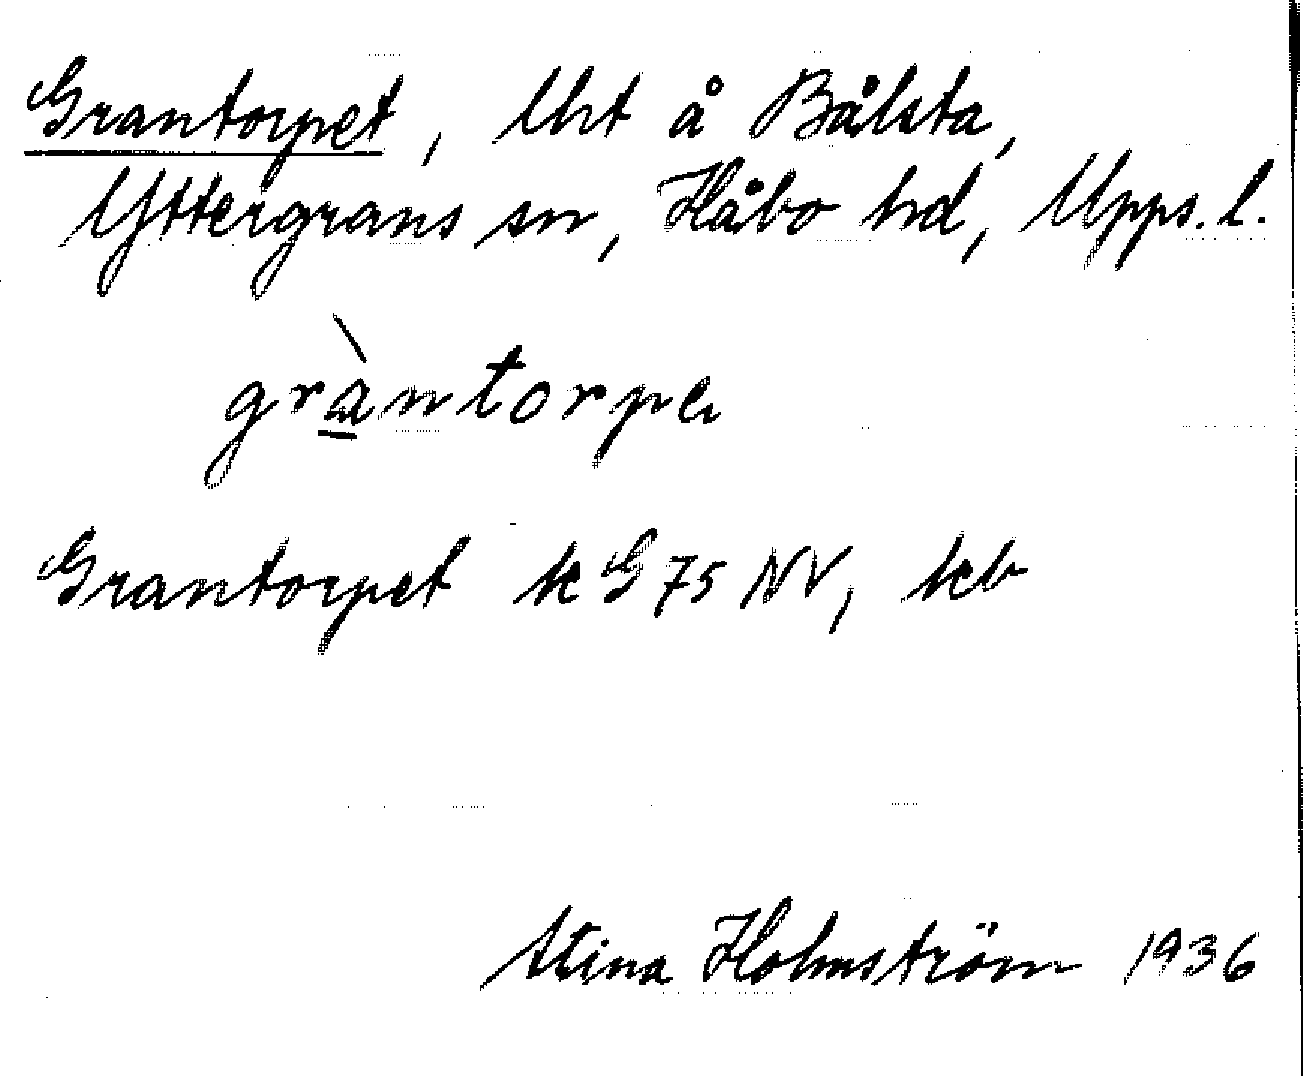 Grantorpet, lht å Bålsta,
Yttergrans sn, Håbo hd, Upps. l.
gràntorpe
Grantorpet k G 75 NV, kb
Stina Holmström 1936